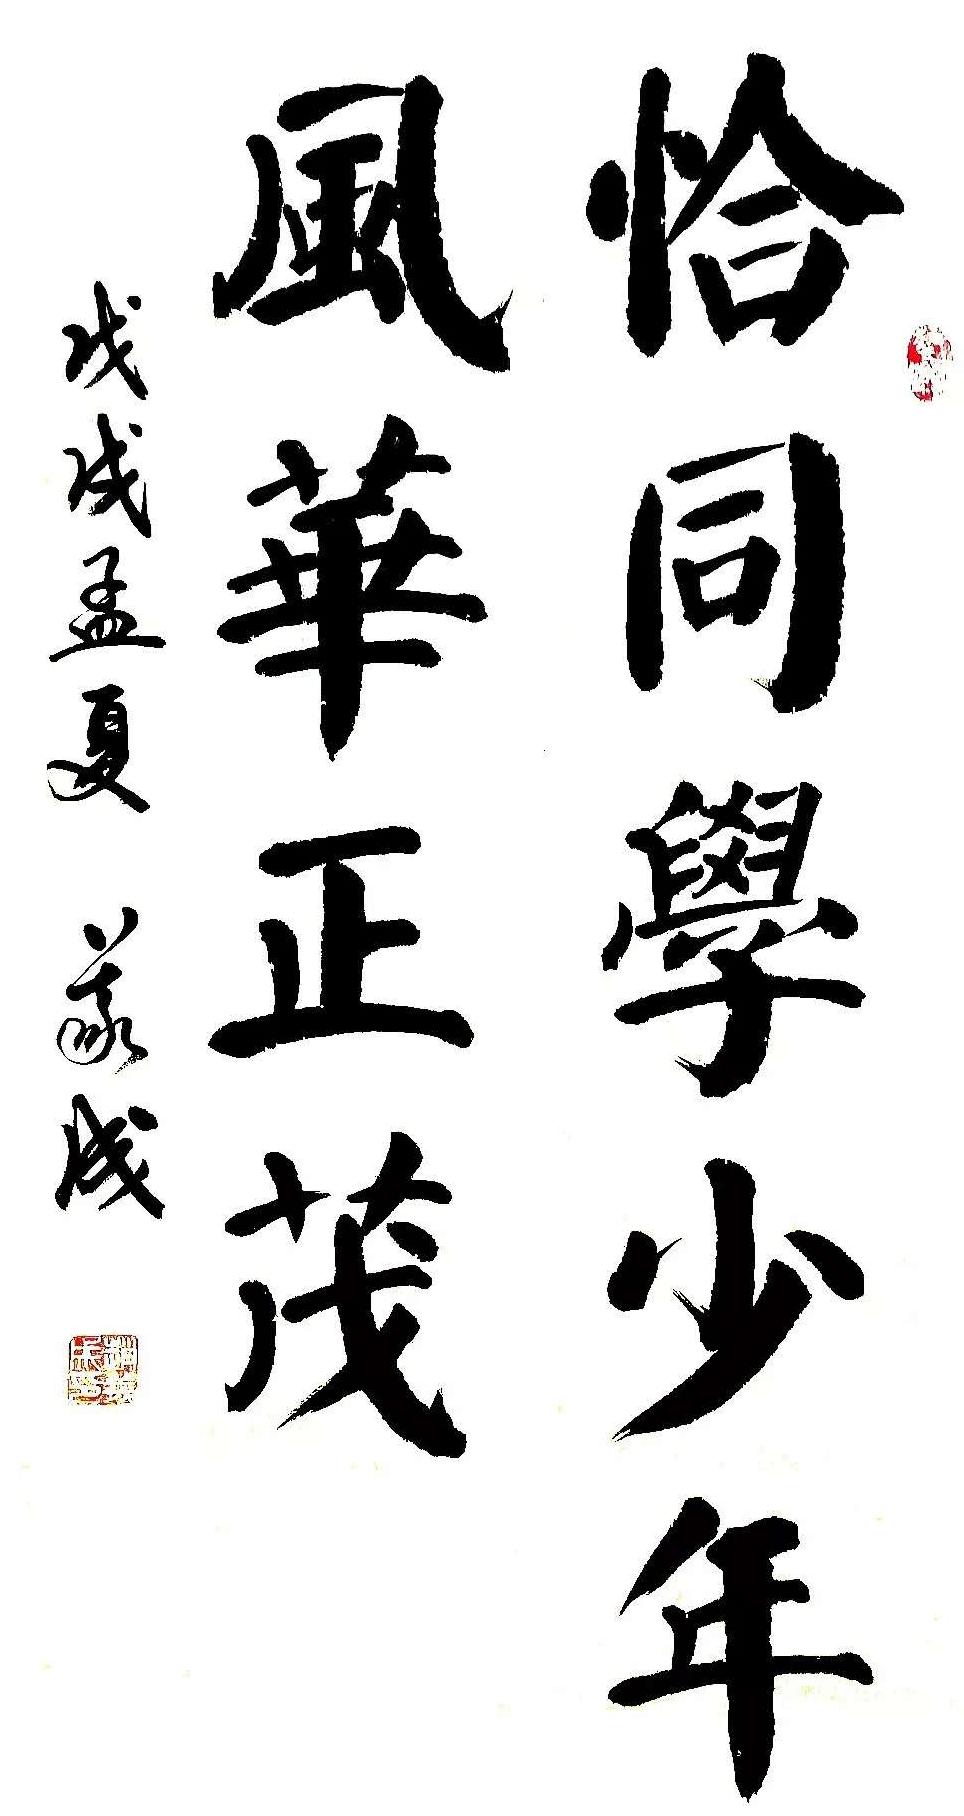 恰同學少年
風華正茂
戊戌孟夏 義成